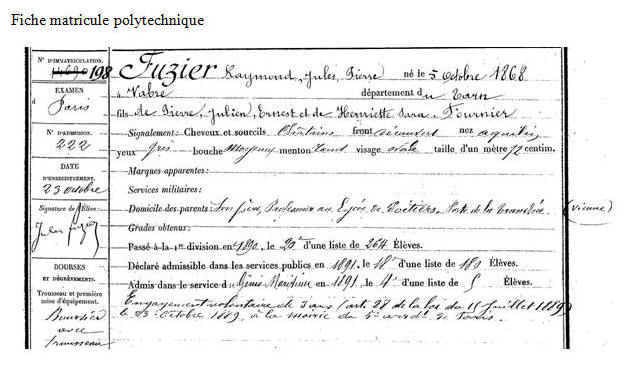 Fiche matricule polytechnique
N° D'IMMATRICULATION.
198
EXAMEN
d Paris
N° D'ADMISSION.
222
DATE
D'ENREGISTREMENT.
23 octobre
Signature de l'Élève:
Jules Fuzier
BOURSES
ET DÉGRÈVEMENTS.
Trousseau et première
mise d'équipement.
Boursier
avec
trousseau
Fuzier Raymond, Jules, Pierre né le 5 Octobre 1868
à Vabre département du Tarn
fils de Pierre, Julien, Ernest et de Henriette Sara Fournier
Signalement: Cheveux et sourcils Châtains front découvert nez aquilin
yeux gris bouche Moyenne menton rond visage ovale taille d'un mètre 72 centim.
Marques apparentes:
Services militaires:
Domicile des parents: Son père, Professeur au Lycée de Poitiers, Porte de la Tranchée. (Vienne)
Grades obtenus:
Passé à la 1re division en 1890, le 20e d'une liste de 264 Élèves.
Déclaré admissible dans les services publics en 1891, le 18e d'une liste de 180 Élèves.
Admis dans le service du Génie Maritime en 1891, le 4e d'une liste de 5 Élèves.
Engagement volontaire de 3 ans (art. 28 de la loi du 15 juillet 1889)
le 23 Octobre 1889, à la mairie du 5e arrdt de Paris.